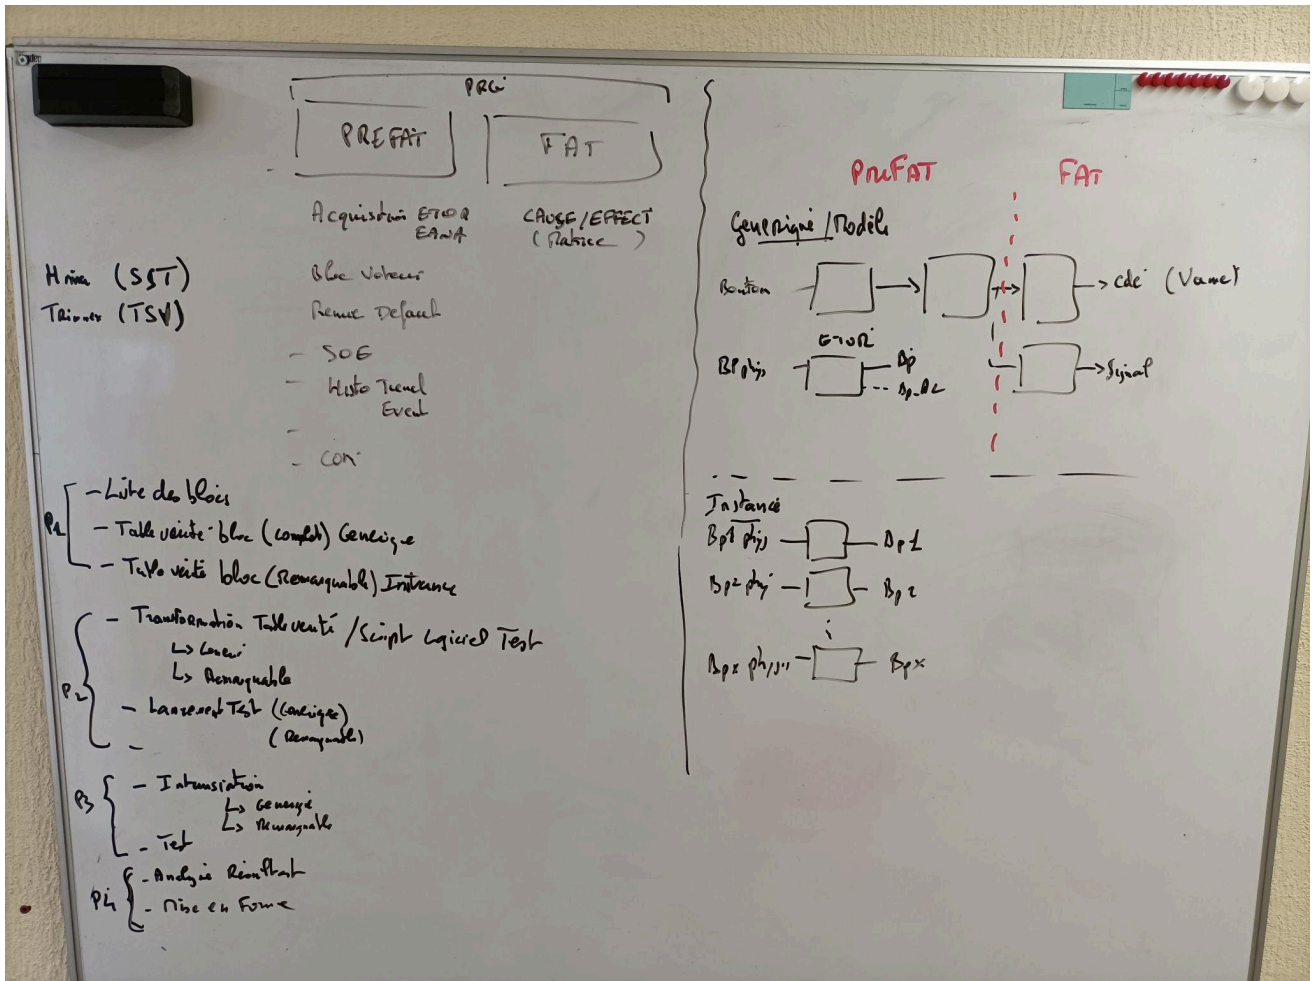 PRG
PREFAT
FAT
Acquisition ETOR
EANA
CAUSE/EFFECT
(Matrice)
(SST)
(TSV)
Bloc Voteur
Defaut
- SOE
- Histo Trend
Event
-
- COM
P1
- Liste des blocs
- Table vérité bloc (complet) Generique
- Table vérité bloc (Remarquable) Instance
P2
- Transformation Table vérité / Script Logiciel Test
↳ Remarquable
- Lancement Test (Generique)
(Remarquable)
-
P3
- Instansiation
↳ Generiq
↳ Remarquable
- Test
P4
- Analyse Resultat
- Mise en Forme
PreFAT
FAT
Generique / Modèle
Bouton
→ cde (Vanne)
ETOR
BP phys
Bp
→ Signal
Instance
Bp1 phys
Bp1
Bp2 phys
Bp2
Bpx phys
Bpx